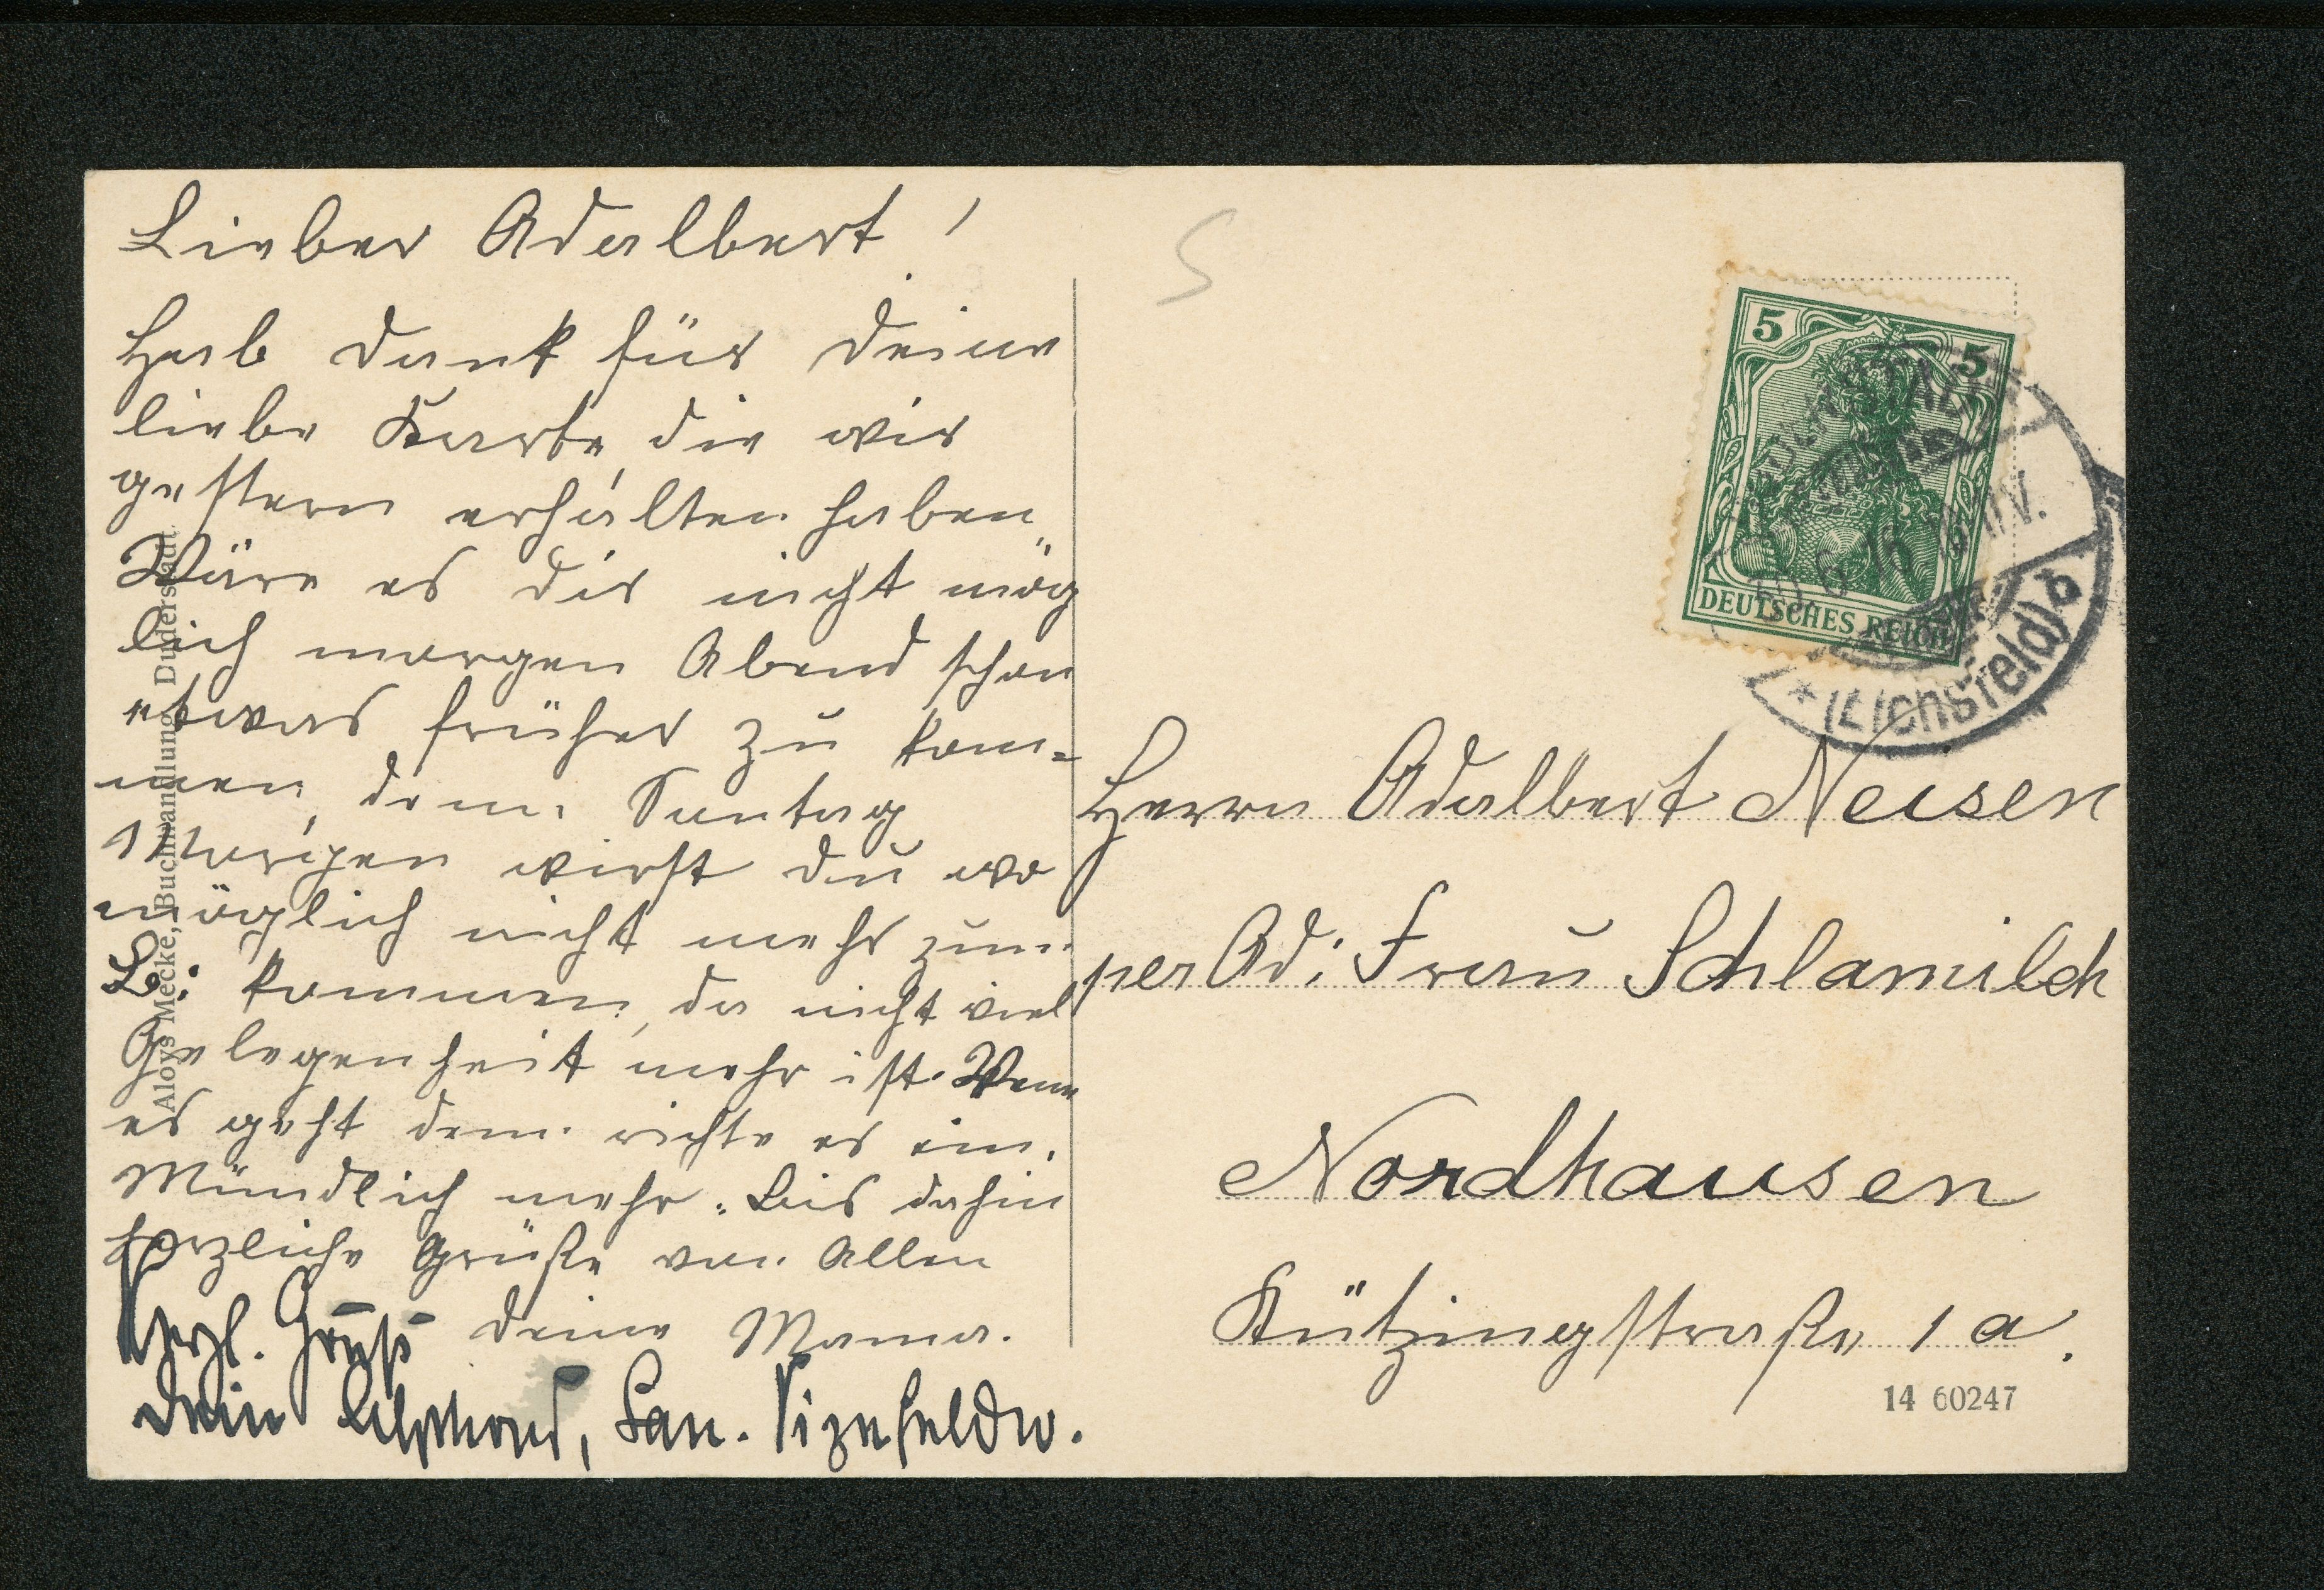 Lieber Adalbert!
Hab Dank für Deine
liebe Karte, die wir
gestern erhalten haben.
Wäre es dir nicht mög
lich morgen Abend schon
etwas früher zu kom=
men, denn Sontag
Morgen wirst du wo
möglich nicht mehr zum
B: kommen, da nicht viel
Gelegenheit mehr ist. Wenn
es geht dann richte es ein.
Mündlich mehr. Bis dahin
herzliche Grüße von Allen
Deine Mama.
Herzl. Gruß
Dein San. Vizefeldw.
Aloys Mecke, Buchhandlung, Duderstadt.
S
5 5
DEUTSCHES REICH
DUDERSTADT
* (Eichsfeld) b
Herrn Adalbert Neisen
per Ad: Frau Schlamilch
Nordhausen
Kützingstraße 1 a.
14 60247